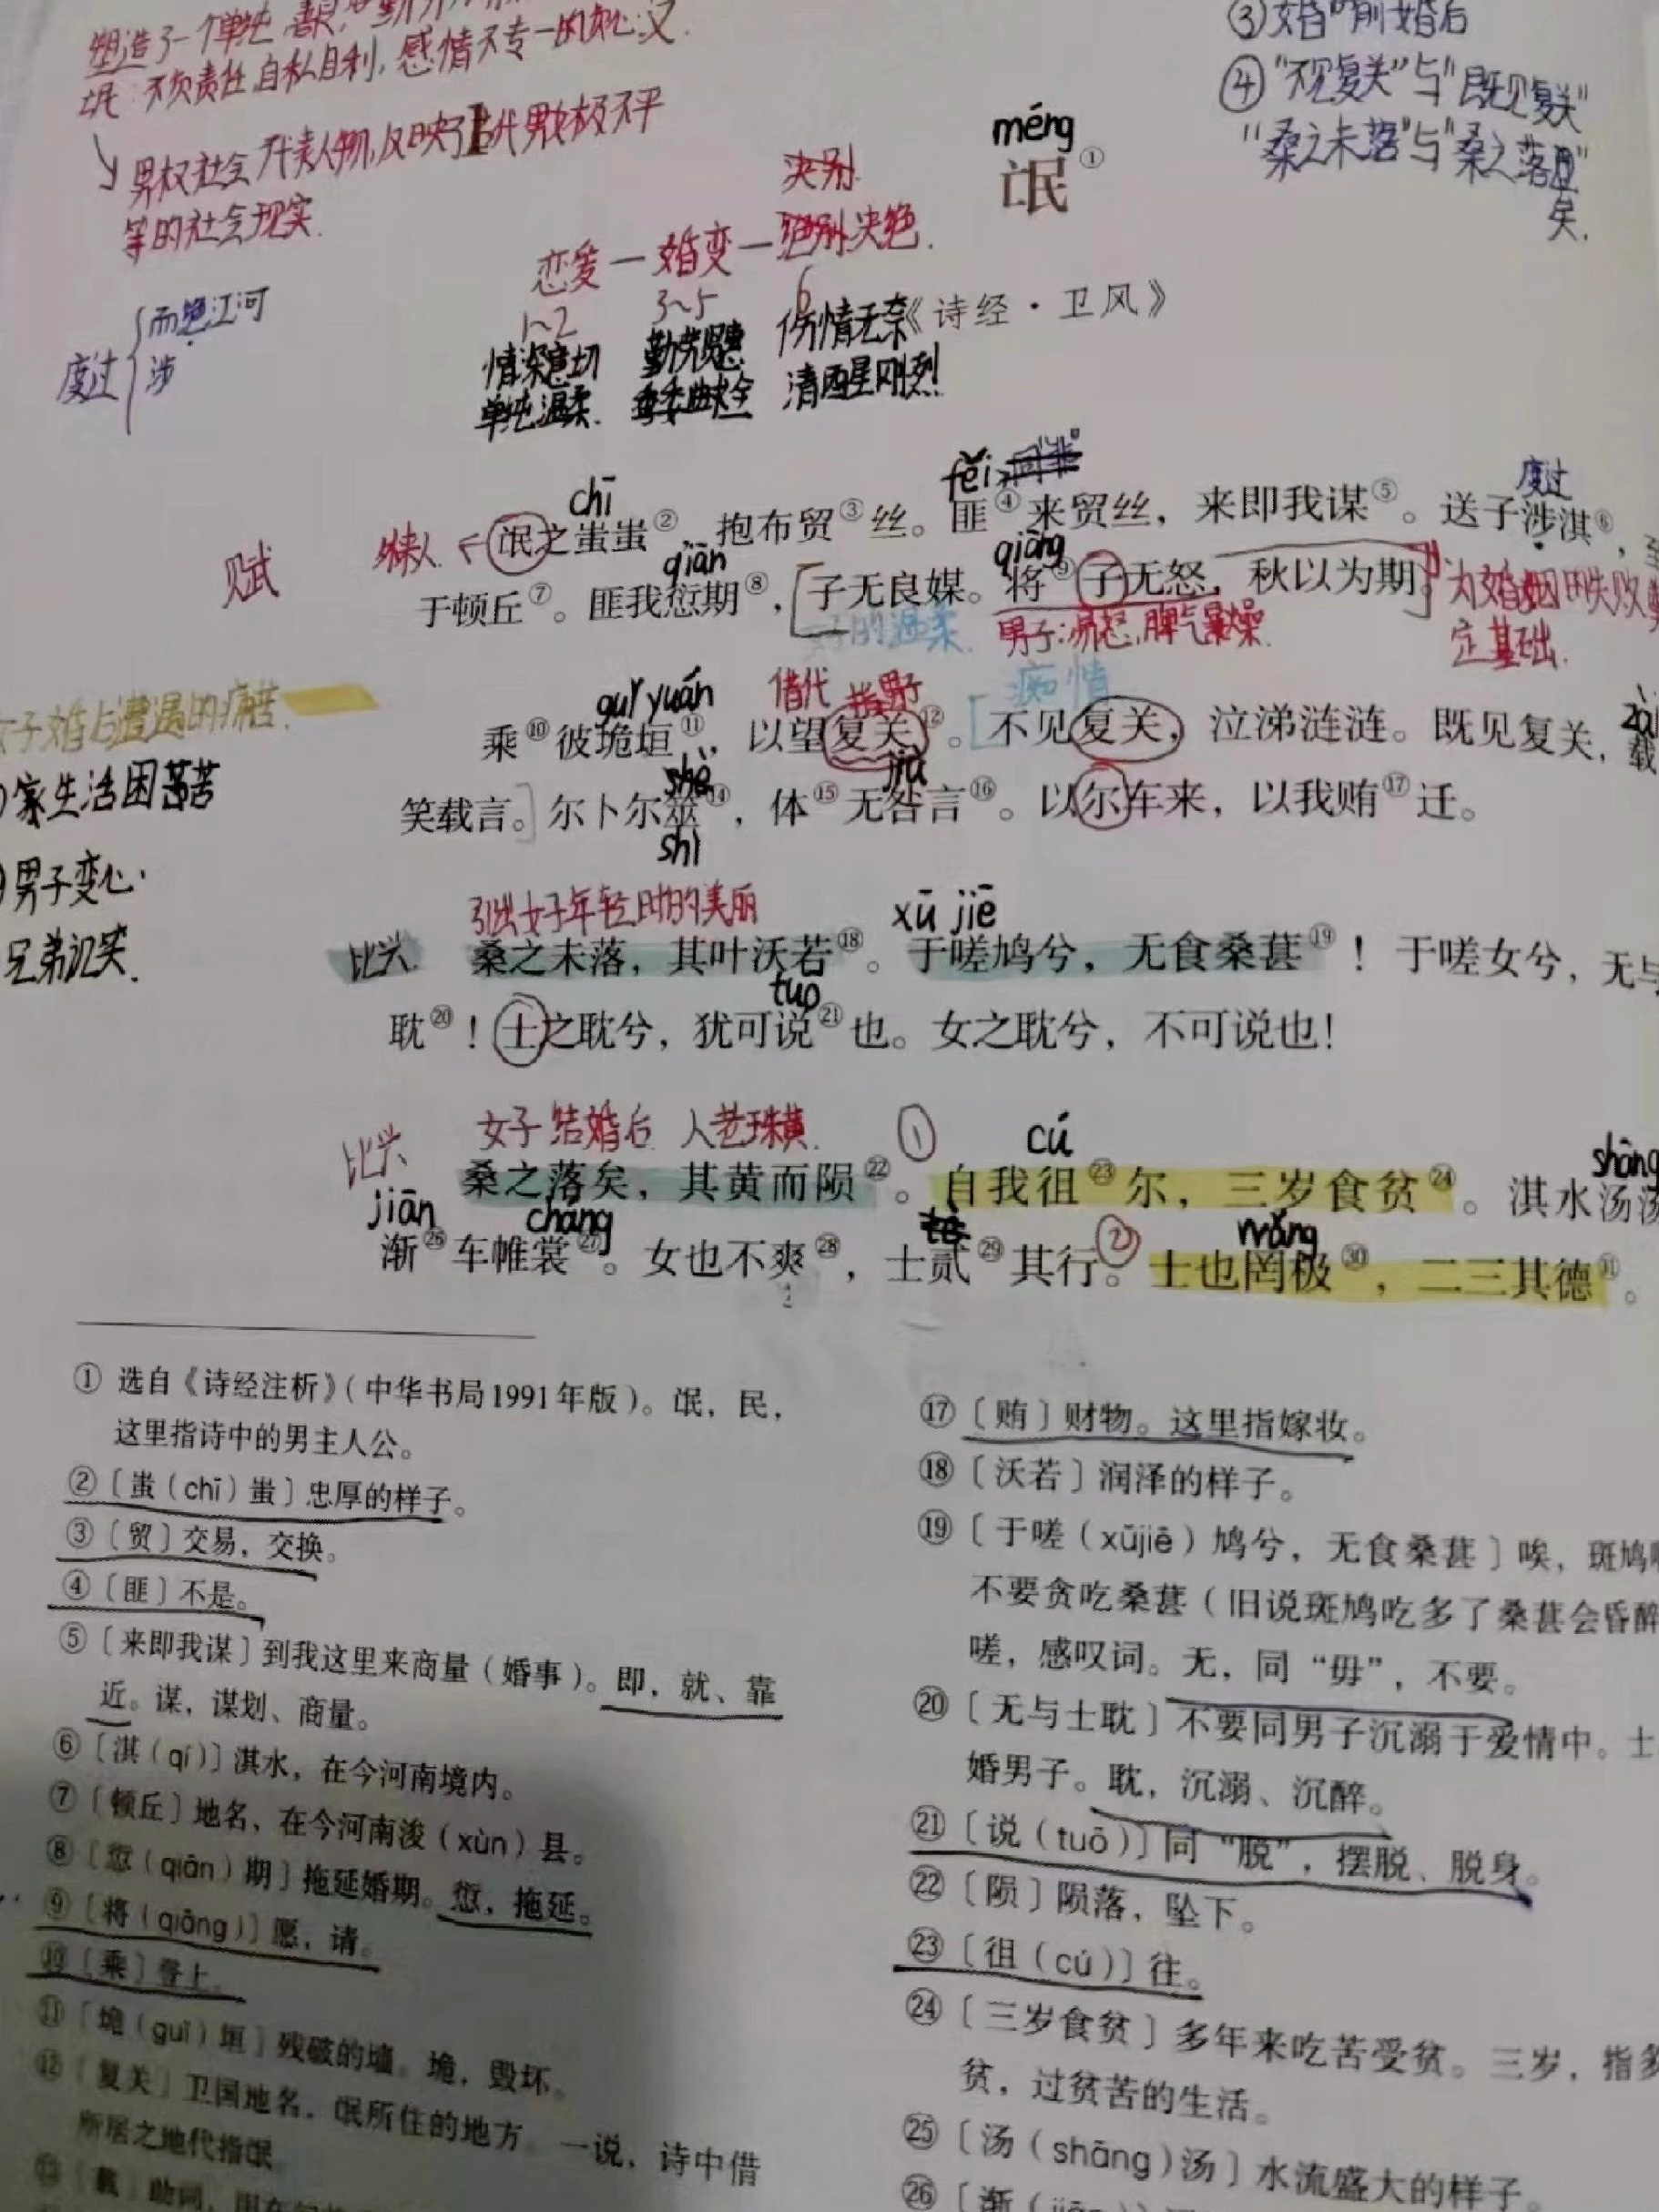 塑造了一个单纯
氓：不负责任,自私自利,感情不专一的负心汉.
男权社会代表人物,反映了古代男女极不平
等的社会现实.
③婚前婚后
④“不见复关”与“既见复关”
“桑之未落”与“桑之落矣”
méng
氓①
决别
恋爱—婚变—决绝.
1~2 3~5 6
情深意切 勤劳贤惠 伤情无奈
单纯温柔. 委曲求全 清醒刚烈
《诗经·卫风》
度过 而绝江河
涉
chī fěi 度过
赋
氓之蚩蚩②，抱布贸③丝。匪④来贸丝，来即我谋⑤。送子涉淇⑥，
qiān qiāng
于顿丘⑦。匪我愆期⑧，子无良媒。将⑨子无怒，秋以为期
女子的温柔. 男子:易怒,脾气暴躁. 为婚姻的失败奠
定基础.
女子婚后遭遇的痛苦.
家生活困苦
男子变心.
兄弟讥笑.
guǐ yuán 借代 指男子 痴情
乘⑩彼垝垣⑪，以望复关⑫。不见复关，泣涕涟涟。既见复关，载
shì jiù
笑载言。尔卜尔筮⑭，体⑮无咎言⑯。以尔车来，以我贿⑰迁。
shì
引出女子年轻时的美丽 xū jiē
比兴. 桑之未落，其叶沃若⑱。于嗟鸠兮，无食桑葚⑲！于嗟女兮，无与
tuō
耽⑳！士之耽兮，犹可说㉑也。女之耽兮，不可说也！
女子结婚后 人老珠黄. ① cú
比兴 桑之落矣，其黄而陨㉒。自我徂㉓尔，三岁食贫㉔。淇水汤汤
jiān cháng ② wǎng shāng
渐㉖车帷裳㉗。女也不爽㉘，士贰㉙其行。士也罔极㉚，二三其德㉛。
① 选自《诗经注析》（中华书局1991年版）。氓，民，
这里指诗中的男主人公。
②〔蚩（chī）蚩〕忠厚的样子。
③〔贸〕交易，交换。
④〔匪〕不是。
⑤〔来即我谋〕到我这里来商量（婚事）。即，就、靠
近。谋，谋划、商量。
⑥〔淇（qí）〕淇水，在今河南境内。
⑦〔顿丘〕地名，在今河南浚（xùn）县。
⑧〔愆（qiān）期〕拖延婚期。愆，拖延。
⑨〔将（qiāng）〕愿，请。
⑩〔乘〕登上。
⑪〔垝（guǐ）垣〕残破的墙。垝，毁坏。
⑫〔复关〕卫国地名，氓所住的地方。一说，诗中借
所居之地代指氓。
⑬〔载〕助词，
⑰〔贿〕财物。这里指嫁妆。
⑱〔沃若〕润泽的样子。
⑲〔于嗟（xūjiē）鸠兮，无食桑葚〕唉，斑鸠
不要贪吃桑葚（旧说斑鸠吃多了桑葚会昏醉
嗟，感叹词。无，同“毋”，不要。
⑳〔无与士耽〕不要同男子沉溺于爱情中。士
婚男子。耽，沉溺、沉醉。
㉑〔说（tuō）〕同“脱”，摆脱、脱身。
㉒〔陨〕陨落，坠下。
㉓〔徂（cú）〕往。
㉔〔三岁食贫〕多年来吃苦受贫。三岁，指多
贫，过贫苦的生活。
㉕〔汤（shāng）汤〕水流盛大的样子。
㉖〔渐（jiān）〕